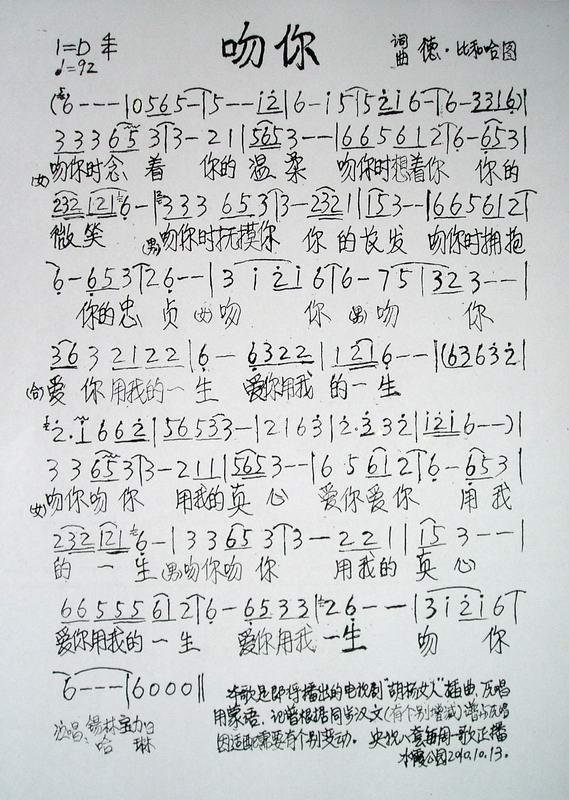 吻你
1=D 4/4
♩=92
词曲 德·比和哈图
(6 - - - | 0 5 6 5 - | 5 - - i 2 | 6 - i 5 | 5 5 2 i 6 - | 6 - 3 3 1 6) |
3 3 3 6 5 3 | 3 - 2 1 | 5 6 5 3 - - | 6 6 5 6 1 2 | 6 - 6 5 3 |
(女)吻你时念着 你的温柔 吻你时想着你 你的
2 3 2 1 2 1 6 - | 3 3 3 6 5 3 | 3 - 2 3 2 1 | 1 5 3 - - | 6 6 5 6 1 2 |
微笑 (男)吻你时抚摸你 你的长发 吻你时拥抱
6 - 6 5 3 | 2 6 - - | 3 i 2 i 6 | 6 - 7 5 | 3 2 3 - - |
你的忠贞 (女)吻 你 (男)吻 你
3 6 3 2 1 2 2 | 6 - 6 3 2 2 | 1 2 1 6 - - | (6 3 6 3 2 |
(合)爱你用我的一生 爱你用我的一生
2 · 1 6 6 2 | 5 6 5 3 3 - | 2 1 6 3 | 2 · 3 3 2 | i 2 i 6 - -) |
3 3 6 5 3 | 3 - 2 1 1 | 5 6 5 3 - - | 6 5 6 1 2 | 6 - 6 5 3 |
(女)吻你吻你 用我的真心 爱你爱你 用我
2 3 2 1 2 1 6 - | 3 3 6 5 3 | 3 - 2 2 1 | 1 5 3 - - |
的一生 (男)吻你吻你 用我的真心
6 6 5 5 5 6 1 2 | 6 - 6 5 3 3 | 2 6 - - | 3 i 2 i 6 |
爱你用我的一生 爱你用我一生 吻 你
6 - - - | 6 0 0 0 ||
演唱:锡林宝力日
哈 琳
本歌是即将播出的电视剧"胡杨女人"插曲,原唱
用蒙语。记谱根据同步汉文(有个别增减)谱与原唱
因适配需要有个别变动。 央视八套每周一歌正播
水霞公园2010.10.13.